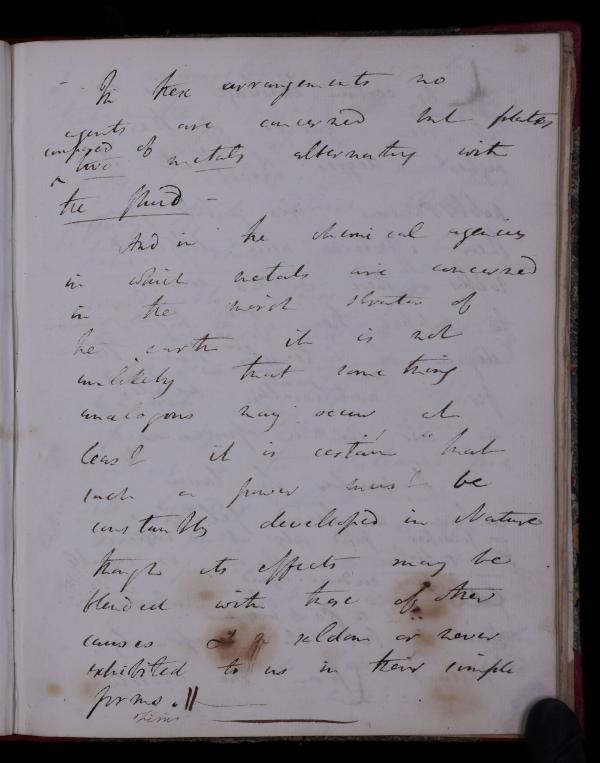 In these arrangements no
agents are concerned but plates
composed of
two metals alternating with
the fluid -
And in the chemical agencies
in which metals are concerned
in the moist strata of
the earth it is not
unlikely that some thing
analogous may occur at
least it is certain that
such a power must be
constantly developed in Nature
though its effects may be
blended with those of other
causes & seldom or never
exhibited to us in their simple
forms.